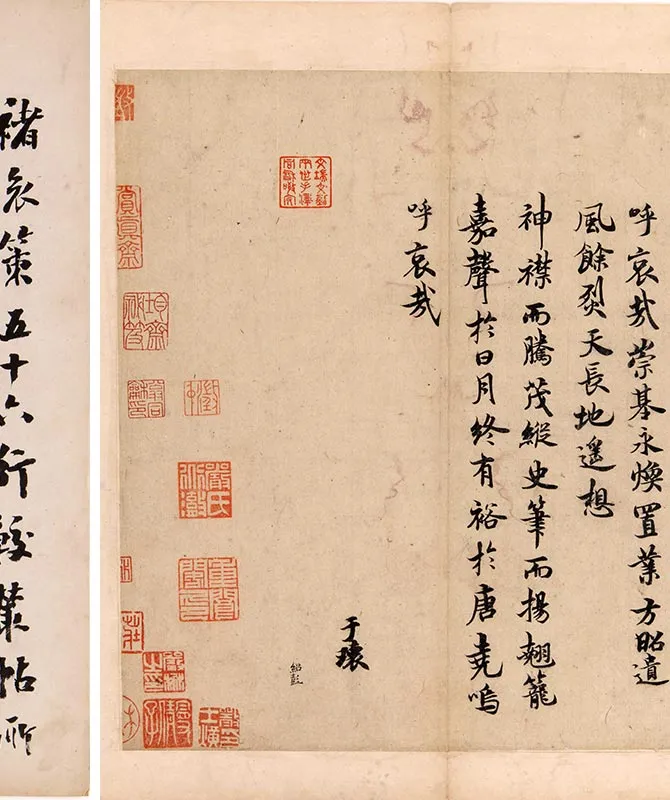 呼哀哉崇基永煥置業方昭遺
風餘烈天長地遥想
神襟而騰茂縱史筆而揚翹籠
嘉聲於日月終有裕於唐堯嗚
呼哀哉
于瓌
紹彭
賞真齋
褚哀策五十六行較叢帖所